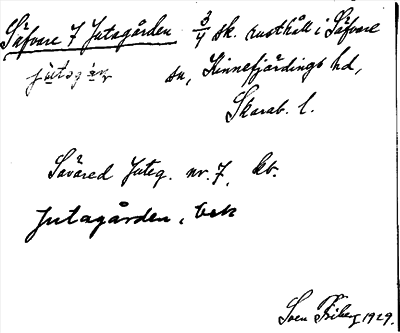 Säfvare 7 Jutagården 3/4 sk. rusthåll i Säfvare
jutagár sn, Kinnefjärdings hd,
Skarab. l.
Sävared Juteg. nr. 7. kb.
Jutagården, bsk
Sven Friberg 1929.